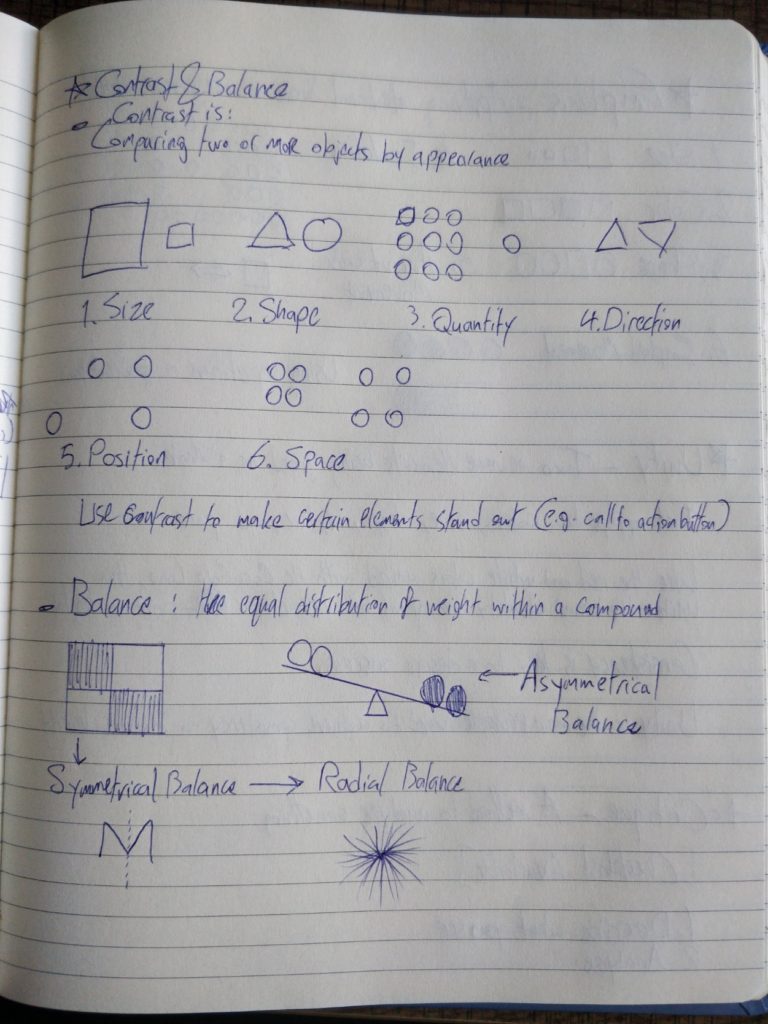 ☆ Contrast & Balance
- Contrast is:
Comparing two or more objects by appearance
1. Size 2. Shape 3. Quantity 4. Direction
5. Position 6. Space
Use Contrast to make certain elements stand out (e.g. call to action button)
- Balance : the equal distribution of weight within a compound
← Asymmetrical
Balance
↓
Symmetrical Balance → Radial Balance
M